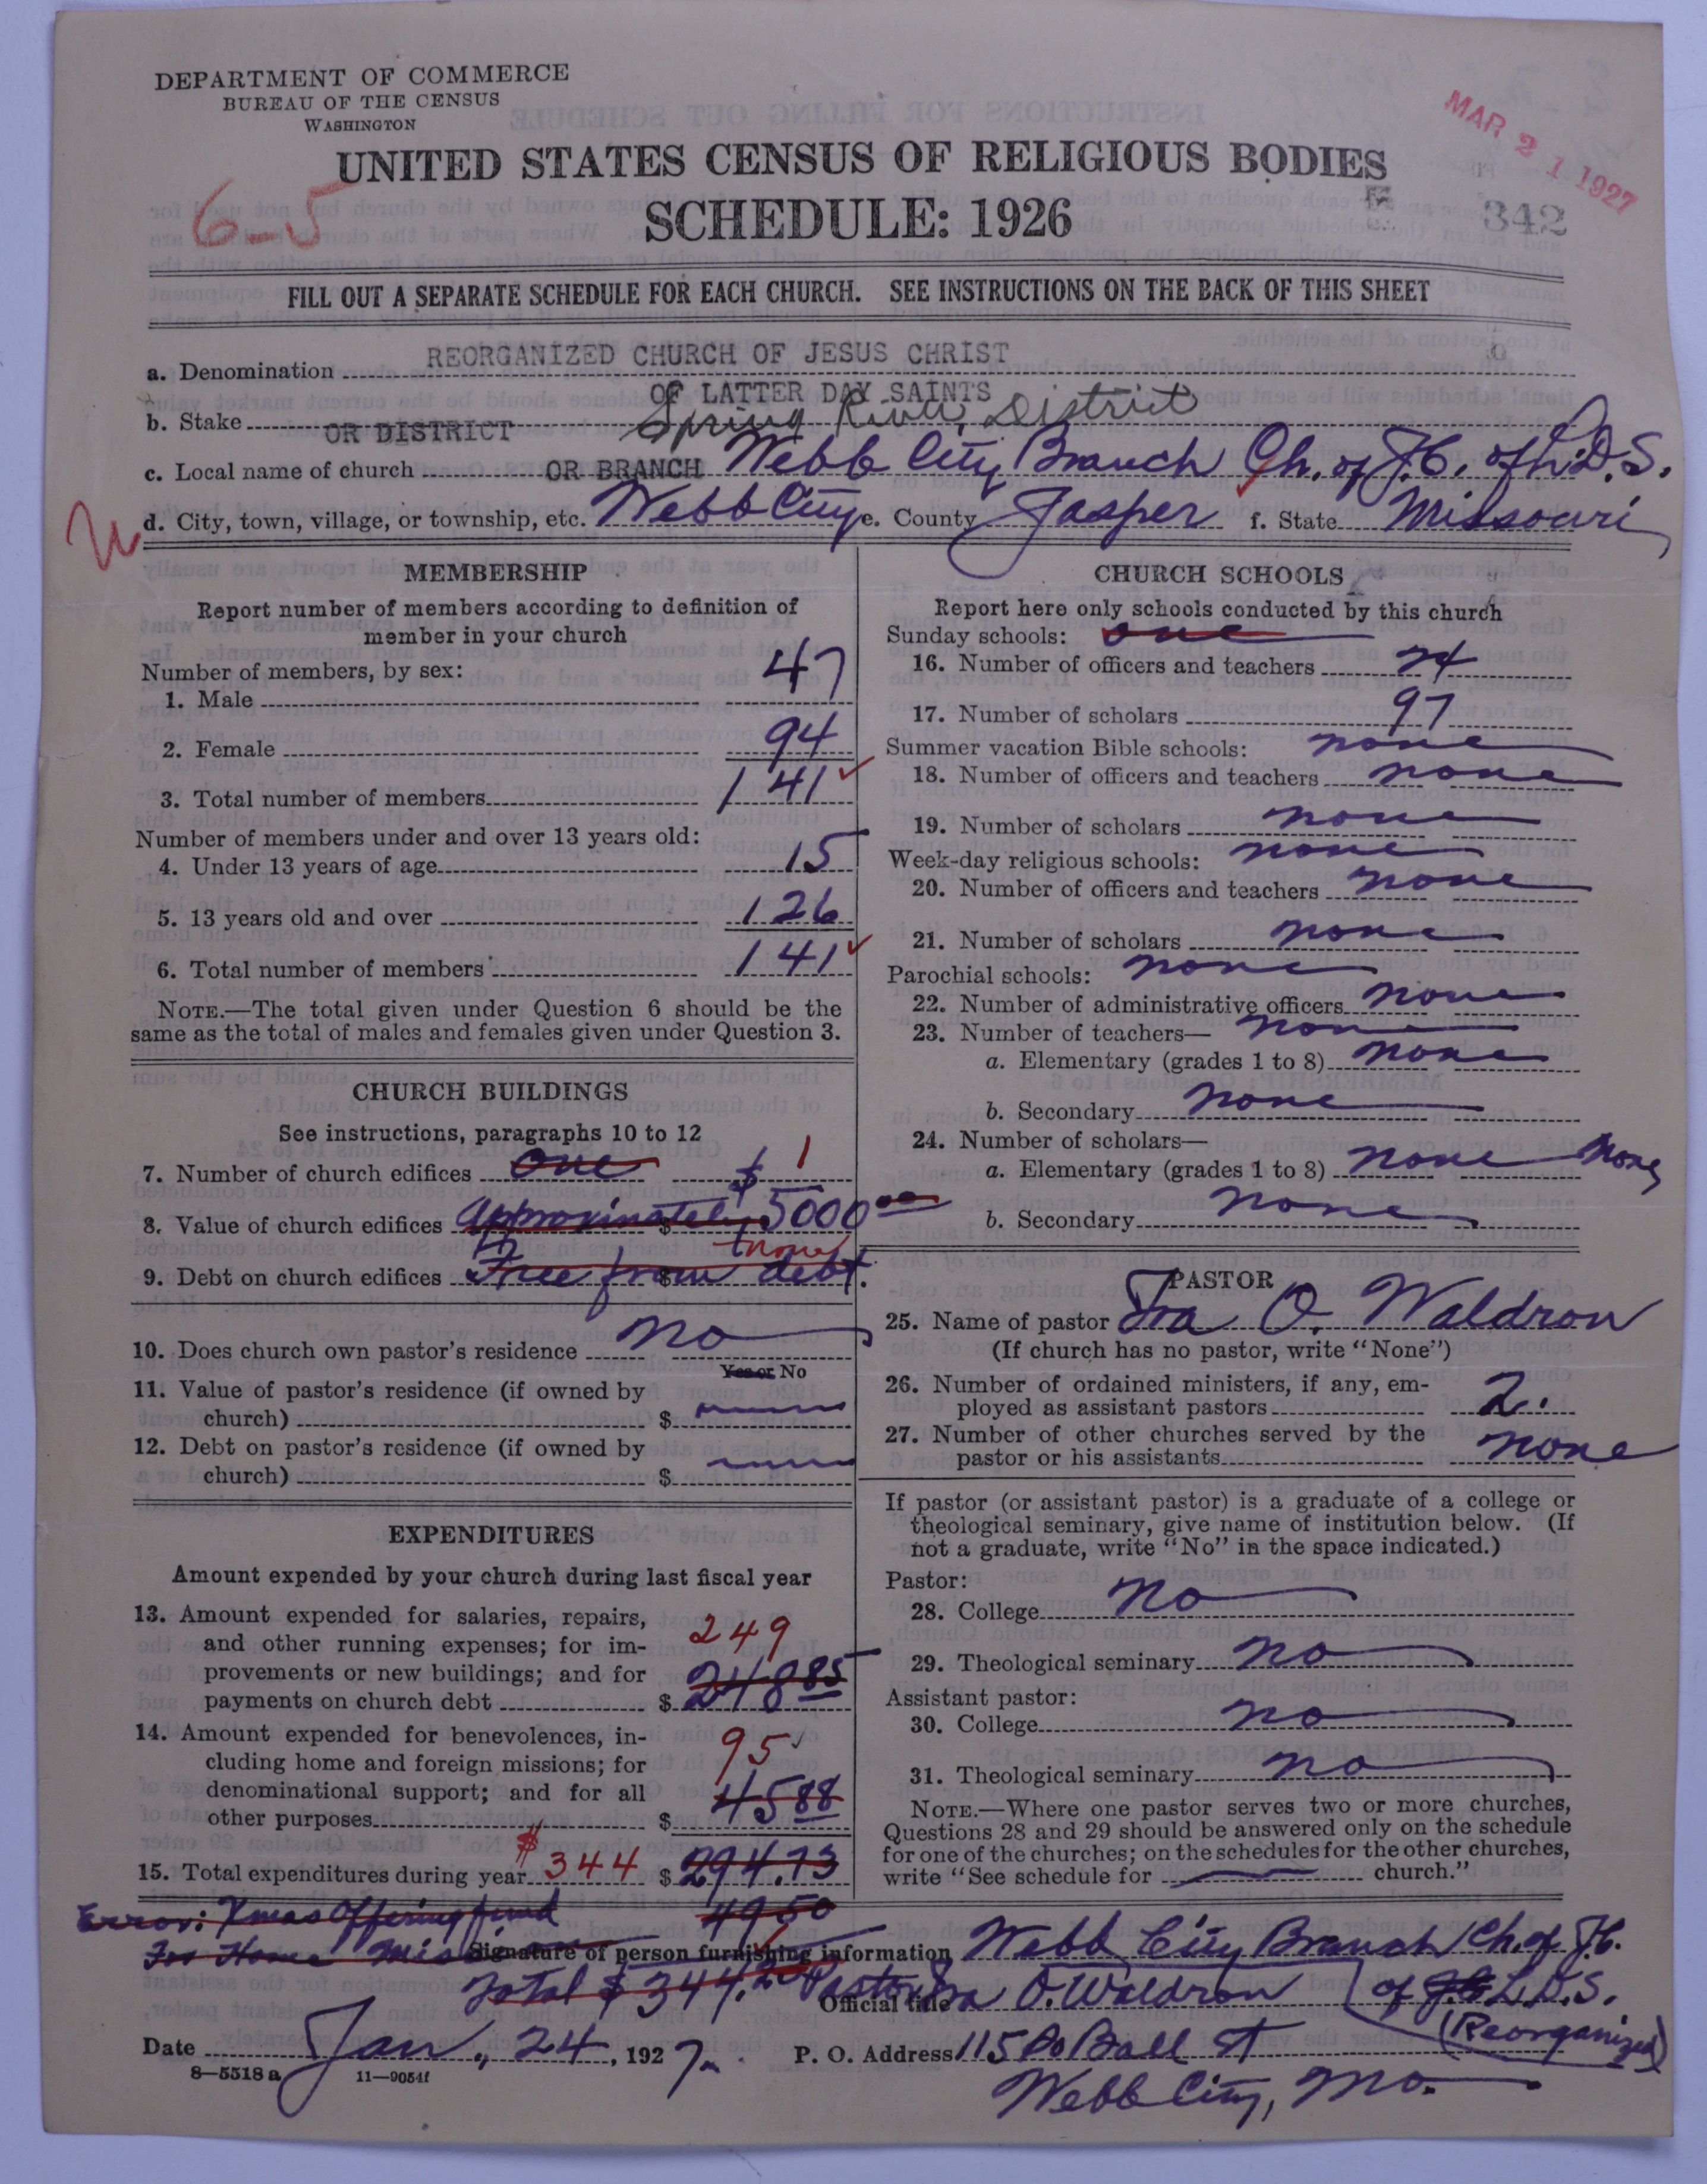 DEPARTMENT OF COMMERCE
BUREAU OF THE CENSUS
WASHINGTON
MAR 21 1927
UNITED STATES CENSUS OF RELIGIOUS BODIES
6-5
SCHEDULE: 1926
342
FILL OUT A SEPARATE SCHEDULE FOR EACH CHURCH. SEE INSTRUCTIONS ON THE BACK OF THIS SHEET
a. Denomination REORGANIZED CHURCH OF JESUS CHRIST
OF LATTER DAY SAINTS
b. Stake OR DISTRICT Spring River District
c. Local name of church OR BRANCH Webb City Branch Ch. of J.C. of L.D.S.
d. City, town, village, or township, etc. Webb City e. County Jasper f. State Missouri
MEMBERSHIP
Report number of members according to definition of
member in your church
Number of members, by sex:
1. Male 47
2. Female 94
3. Total number of members 141
Number of members under and over 13 years old:
4. Under 13 years of age 15
5. 13 years old and over 126
6. Total number of members 141
NOTE.—The total given under Question 6 should be the
same as the total of males and females given under Question 3.
CHURCH BUILDINGS
See instructions, paragraphs 10 to 12
7. Number of church edifices one 1
8. Value of church edifices Approximately $ 5000 00
9. Debt on church edifices Free from debt. none
10. Does church own pastor's residence no
Yes or No
11. Value of pastor's residence (if owned by
church) $
12. Debt on pastor's residence (if owned by
church) $
EXPENDITURES
Amount expended by your church during last fiscal year
13. Amount expended for salaries, repairs,
and other running expenses; for im- 249
provements or new buildings; and for
payments on church debt $ 248 85
14. Amount expended for benevolences, in- 95
cluding home and foreign missions; for
denominational support; and for all
other purposes $ 45 88
15. Total expenditures during year $ 344 $ 294.73
CHURCH SCHOOLS
Report here only schools conducted by this church
Sunday schools: one
16. Number of officers and teachers 24
17. Number of scholars 97
Summer vacation Bible schools: none
18. Number of officers and teachers none
19. Number of scholars none
Week-day religious schools: none
20. Number of officers and teachers none
21. Number of scholars none
Parochial schools: none
22. Number of administrative officers none
23. Number of teachers— none
a. Elementary (grades 1 to 8) none
b. Secondary none
24. Number of scholars—
a. Elementary (grades 1 to 8) none none
b. Secondary none
PASTOR
25. Name of pastor Ira O. Waldron
(If church has no pastor, write "None")
26. Number of ordained ministers, if any, em-
ployed as assistant pastors 2.
27. Number of other churches served by the
pastor or his assistants none
If pastor (or assistant pastor) is a graduate of a college or
theological seminary, give name of institution below. (If
not a graduate, write "No" in the space indicated.)
Pastor:
28. College no
29. Theological seminary no
Assistant pastor:
30. College no
31. Theological seminary no
NOTE.—Where one pastor serves two or more churches,
Questions 28 and 29 should be answered only on the schedule
for one of the churches; on the schedules for the other churches,
write "See schedule for church."
Error: Xmas Offering fund 49.50
For Home Miss
Signature of person furnishing information Webb City Branch Ch. of J.C.
Total $ 344.
Official title Pastor Ira O. Waldron of L.D.S.
(Reorganized)
Date Jan., 24, 1927 P. O. Address 115 So Ball St
8—5518 a 11—9054f
Webb City, Mo.